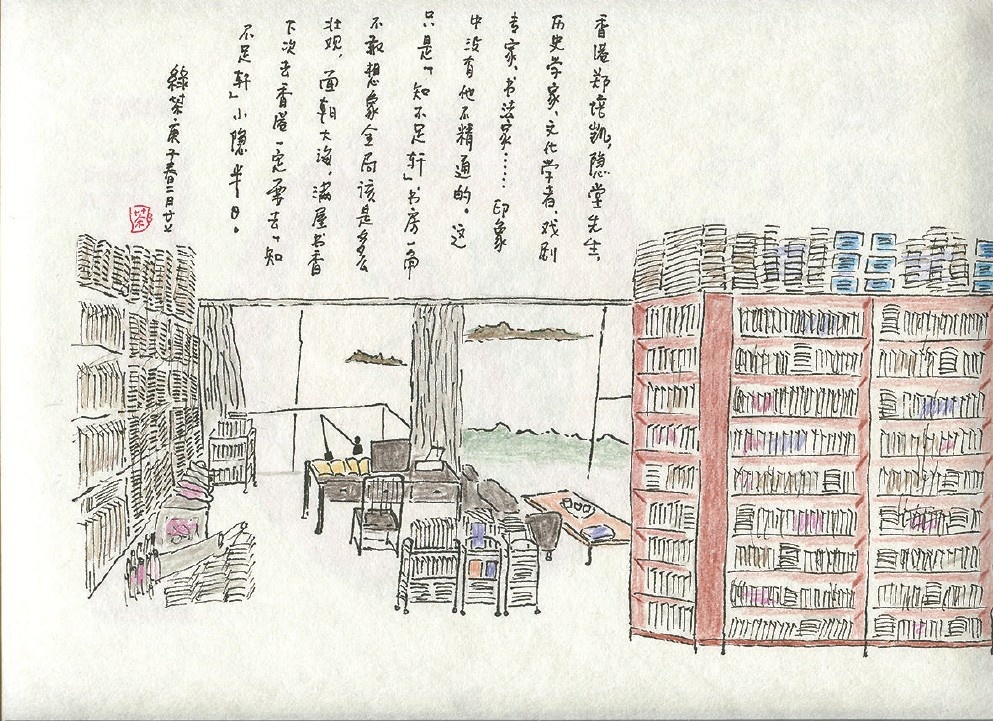 香港郑培凯，隐堂先生，
历史学家、文化学者、戏剧
专家、书法家……印象
中没有他不精通的。这
只是「知不足轩」书房一角
不敢想象全局该是多么
壮观，面朝大海，满屋书香
下次去香港一定要去「知
不足轩」小隐半日。
绿茶庚子春二月廿六